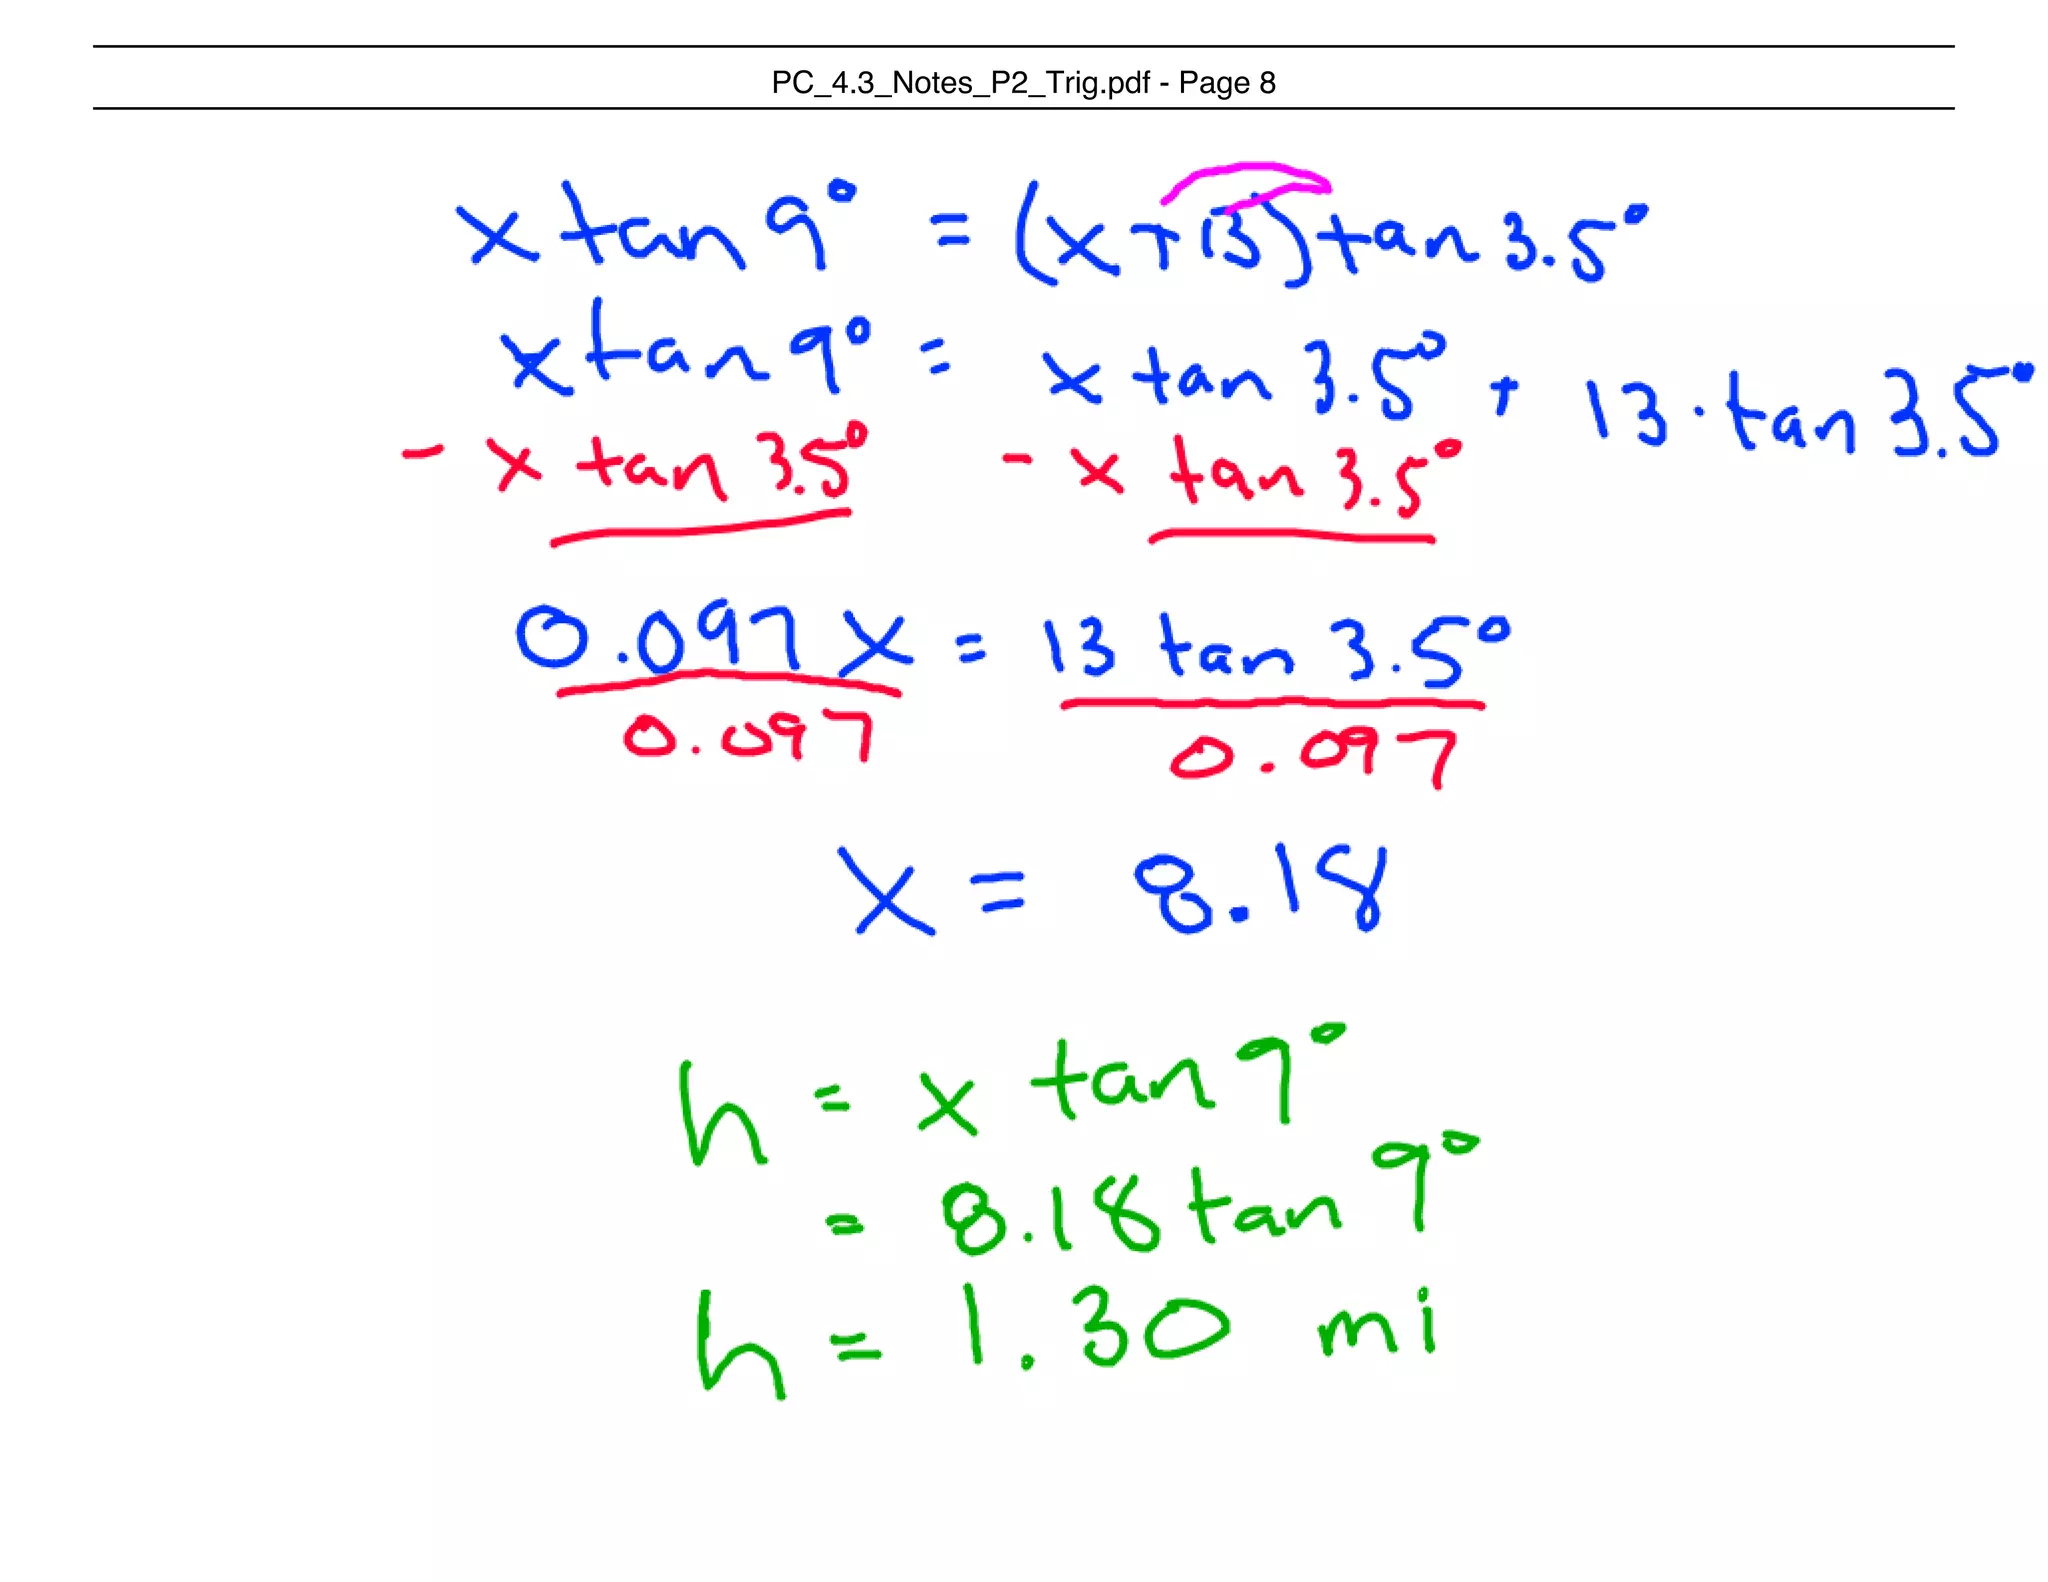 PC_4.3_Notes_P2_Trig.pdf - Page 8
x tan 9° = (x+13) tan 3.5°
x tan 9° = x tan 3.5° + 13 · tan 3.5°
- x tan 3.5° - x tan 3.5°
0.097 x = 13 tan 3.5°
0.097 0.097
x = 8.18
h = x tan 9°
= 8.18 tan 9°
h = 1.30 mi